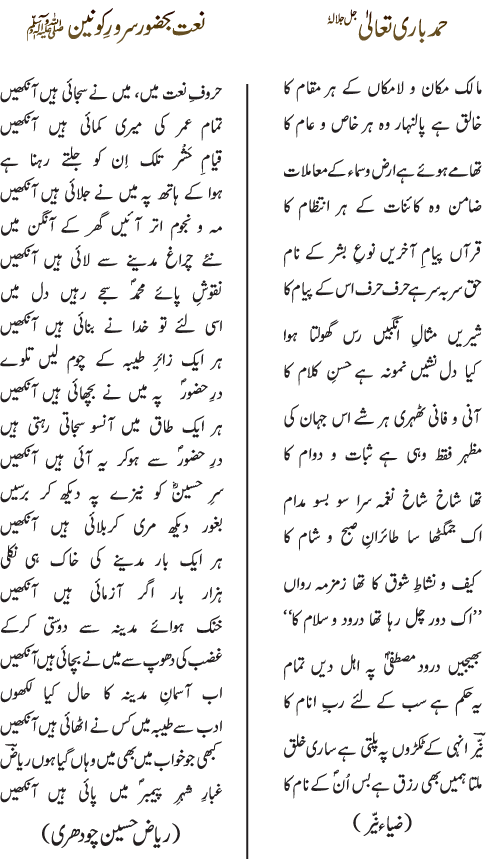 حمد باری تعالیٰ جل جلالہٗ
مالک مکان و لامکاں کے ہر مقام کا
خالق ہے پالنہار وہ ہر خاص و عام کا
تھامے ہوئے ہے ارض و سماء کے معاملات
ضامن وہ کائنات کے ہر انتظام کا
قرآں پیامِ آخریں نوعِ بشر کے نام
حق سربہ سر ہے حرف حرف اس کے پیام کا
شیریں مثالِ انگبیں رس گھولتا ہوا
کیا دل نشیں نمونہ ہے حسنِ کلام کا
آنی و فانی ٹھہری ہر شے اس جہان کی
مظہر فقط وہی ہے ثبات و دوام کا
تھا شاخ شاخ نغمہ سرا سو بسو مدام
اک جمگٹھا سا طائرانِ صبح و شام کا
کیف و نشاطِ شوق کا تھا زمزمہ رواں
’’اک دور چل رہا تھا درود و سلام کا‘‘
بھیجیں درود مصطفیٰؐ پہ اہل دیں تمام
یہ حکم ہے سب کے لئے ربِ انام کا
نیّر انہی کے ٹکڑوں پہ پلتی ہے ساری خلق
ملتا ہمیں بھی رزق ہے بس اُنؐ کے نام کا
(ضیاء نیّر)
نعت بحضور سرورِ کونین ﷺ
حروفِ نعت میں، میں نے سجائی ہیں آنکھیں
تمام عمر کی میری کمائی ہیں آنکھیں
قیامِ حشر تلک اِن کو جلتے رہنا ہے
ہوا کے ہاتھ پہ میں نے جلائی ہیں آنکھیں
مہ و نجوم اتر آئیں گھر کے آنگن میں
نئے چراغ مدینے سے لائی ہیں آنکھیں
نقوشِ پائے محمدؐ سجے رہیں دل میں
اسی لئے تو خدا نے بنائی ہیں آنکھیں
ہر ایک زائرِ طیبہ کے چوم لیں تلوے
درِ حضورؐ پہ میں نے بچھائی ہیں آنکھیں
ہر ایک طاق میں آنسو سجاتی رہتی ہیں
درِ حضورؐ سے ہوکر یہ آئی ہیں آنکھیں
سرِ حسینؓ کو نیزے پہ دیکھ کر برسیں
بغور دیکھ مری کربلائی ہیں آنکھیں
ہر ایک بار مدینے کی خاک ہی نکلی
ہزار بار اگر آزمائی ہیں آنکھیں
خنک ہوائے مدینہ سے دوستی کرکے
غضب کی دھوپ سے میں نے بچائی ہیں آنکھیں
اب آسمانِ مدینہ کا حال کیا لکھوں
ادب سے طیبہ میں کس نے اٹھائی ہیں آنکھیں
کبھی جو خواب میں بھی میں وہاں گیا ہوں ریاضؔ
غبارِ شہرِ پیمبرؐ میں پائی ہیں آنکھیں
(ریاض حسین چودھری)